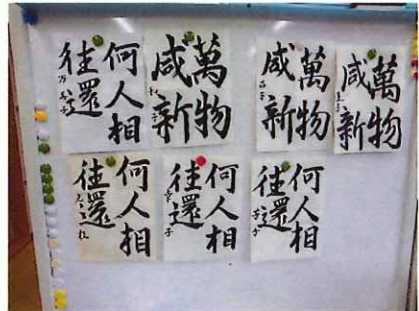 何人相
往還
萬物
咸新
萬物
咸新
萬物
咸新
何人相
往還
何人相
往還
何人相
往還